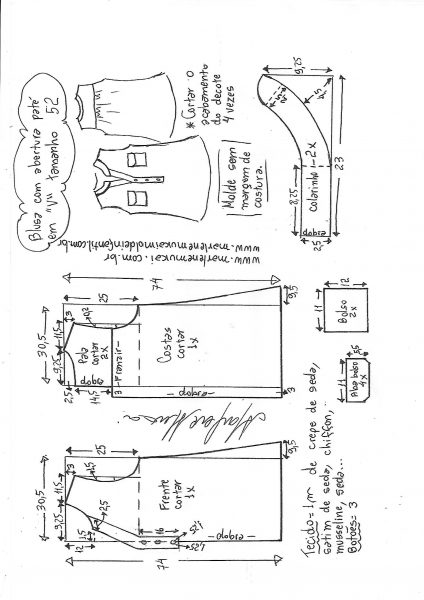 Blusa com abertura patê
em "V" tamanho 52
* Cortar o
acabamento
do decote
4 vezes
Molde sem
margem de
costura.
www.marlenemukaimoldeinfantil.com.br
www.marlenemukai.com.br
9,25
2,5
colarinho 1-2x
8,25
2,5
dobra
23
74
25
30,5
11,5
9,25
3
0,2
2,5
Pala
cortar
2x
dobra
14,5
3
-Franzir-
Costas
cortar
1x
-dobra-
3
9,5
11
12
Bolso
2x
11
5,5
Aba bolso
4x
Marlene Mukai
30,5
11,5
9,25
3
1,5
25
2,5
2
1,5
12
16
Frente
cortar
1x
1,25
1,25
-dobra-
9,5
74
Tecido=1,m de crepe de seda,
satim de seda, chiffon,
musseline, seda...
Botões=3